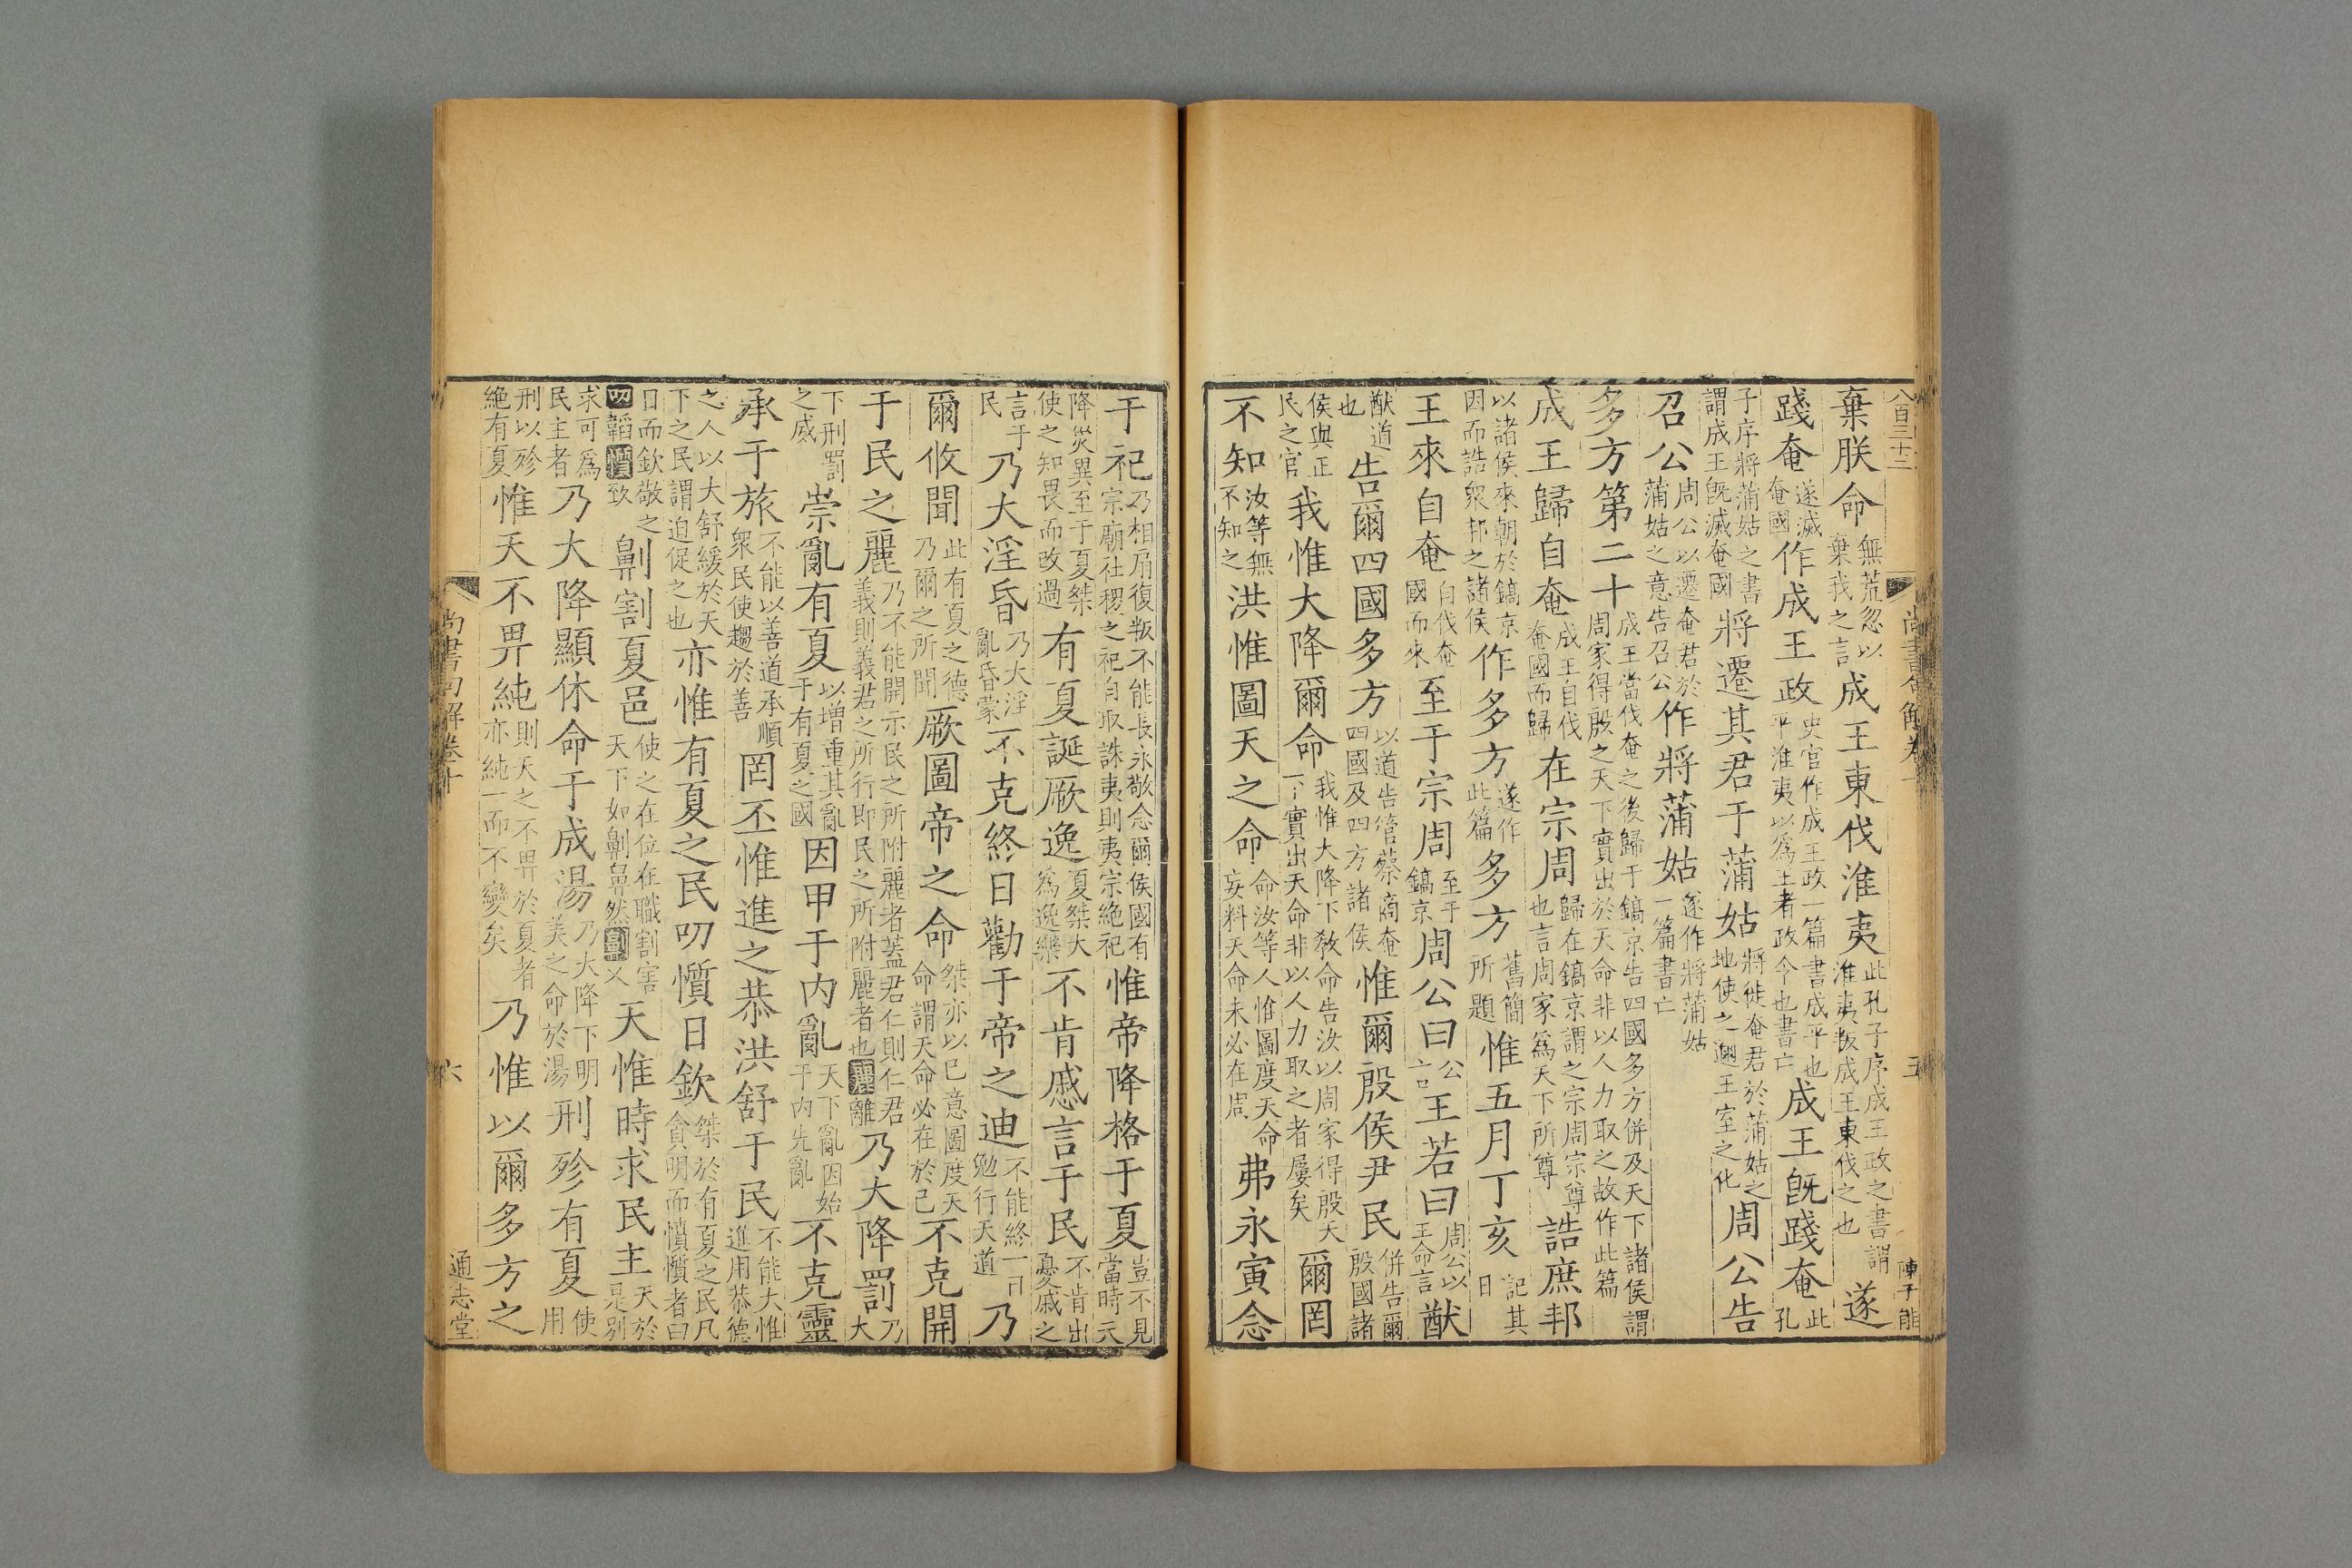 八百三十二
尚書句解卷十
五
陳子能
棄朕命無荒忽以棄我之言成王東伐淮夷此孔子序成王政之書謂淮夷叛成王東伐之也遂
踐奄遂滅奄國作成王政史官作成王政一篇書成平也平淮夷以為王者政今也書亡成王既踐奄此孔
子序將蒲姑之書謂成王旣滅奄國將遷其君于蒲姑將徙奄君於蒲姑之地使之邇王室之化周公告
召公周公以遷奄君於蒲姑之意告召公作將蒲姑遂作將蒲姑一篇書亡
多方第二十成王當伐奄之後歸于鎬京告四國多方併及天下諸侯謂周家得殷之天下實出於天命非以人力取之故作此篇
成王歸自奄成王自伐奄國而歸在宗周歸在鎬京謂之宗周宗尊也言周家為天下所尊誥庶邦
以諸侯來朝於鎬京因而誥衆邦之諸侯作多方遂作此篇多方舊簡所題惟五月丁亥記其日
王來自奄自伐奄國而來至于宗周至于鎬京周公曰公言王若曰周公以王命言猷
猷道也告爾四國多方以道告管蔡商奄四國及四方諸侯惟爾殷侯尹民併告爾殷國諸
侯與正民之官我惟大降爾命我惟大降下教命告汝以周家得殷天下實出天命非以人力取之者屢矣爾罔
不知汝等無不知之洪惟圖天之命命汝等人惟圖度天命妄料天命未必在周弗永寅念
于祀乃相扇復叛不能長永敬念爾侯國有宗廟社稷之祀自取誅夷則夷宗絶祀惟帝降格于夏豈不見當時天
降災異至于夏桀使之知畏而改過有夏誕厥逸夏桀大為逸樂不肯慼言于民不肯出憂慼之
言于民乃大淫昏乃大淫亂昏蒙不克終日勸于帝之迪不能終一日勉行天道乃
爾攸聞此有夏之德乃爾之所聞厥圖帝之命桀亦以已意圖度天命謂天命必在於已不克開
于民之麗乃不能開示民之所附麗者蓋君仁則仁君義則義君之所行即民之所附麗者也麗離乃大降罰乃大
下刑罰之威崇亂有夏以增重其亂于有夏之國因甲于內亂天下亂因始于內先亂不克靈
承于旅不能以善道承順衆民使趨於善罔丕惟進之恭洪舒于民不能大惟進用恭德
之人以大舒緩於天下之民謂迫促之也亦惟有夏之民叨懫日欽桀於有夏之民凡貪叨而懫懫者曰
日而欽敬之叨韜懫致劓割夏邑使之在位在職割害天下如劓鼻然劓乂天惟時求民主天於是別
求可為民主者乃大降顯休命于成湯乃大降下明美之命於湯刑殄有夏使用
刑以殄絶有夏惟天不畀純則天之不畀於夏者亦純一而不變矣乃惟以爾多方之
尚書句解卷十
六
通志堂